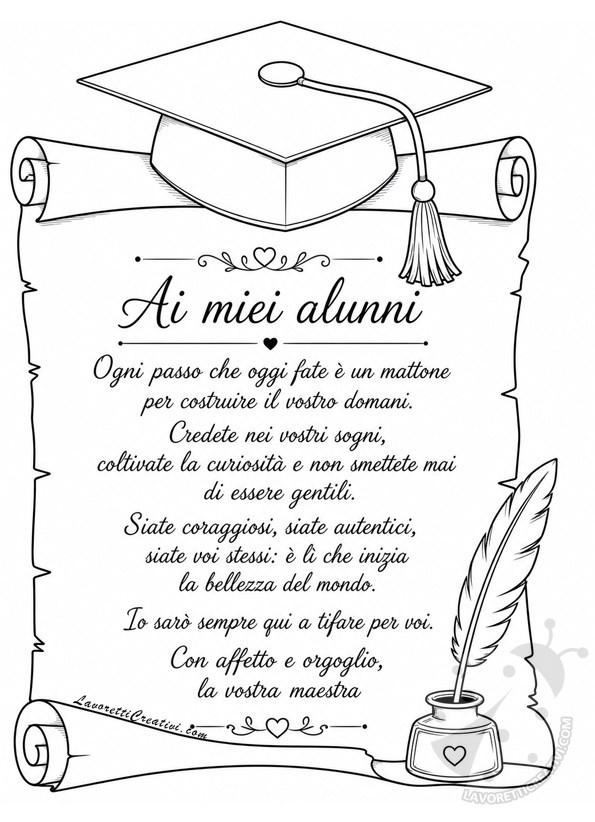 Ai miei alunni
Ogni passo che oggi fate è un mattone
per costruire il vostro domani.
Credete nei vostri sogni,
coltivate la curiosità e non smettete mai
di essere gentili.
Siate coraggiosi, siate autentici,
siate voi stessi: è lì che inizia
la bellezza del mondo.
Io sarò sempre qui a tifare per voi.
Con affetto e orgoglio,
la vostra maestra
LavorettiCreativi.com
LAVORETTICREATIVI.COM